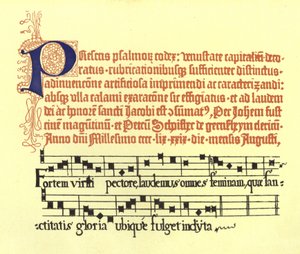 Presens psalmoꝝ codex: venustate capitaliū deco-
ratus. rubricationibusqꝫ sufficienter distinctus.
adinuencōne artificiosa imprimendi ac caracterizandi:
absqꝫ ulla calami exaracōne sic effigiatus. et ad laudem
dei ac honorē sancti Jacobi est 9sumatꝰ, Per Johem fust
ciuē magūtinū. et Petrū Schoifher de gernszheym clericū.
Anno dni Millesimo cccc.lix.xxix. die mensis Augusti,
Fortem virili pectore, laudemus omnes feminam, que san-
ctitatis gloria ubique fulget inclyta